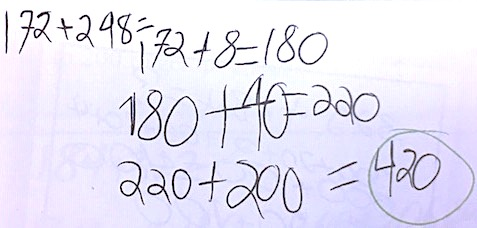 172+248=172+8=180
180+40=220
220+200=420